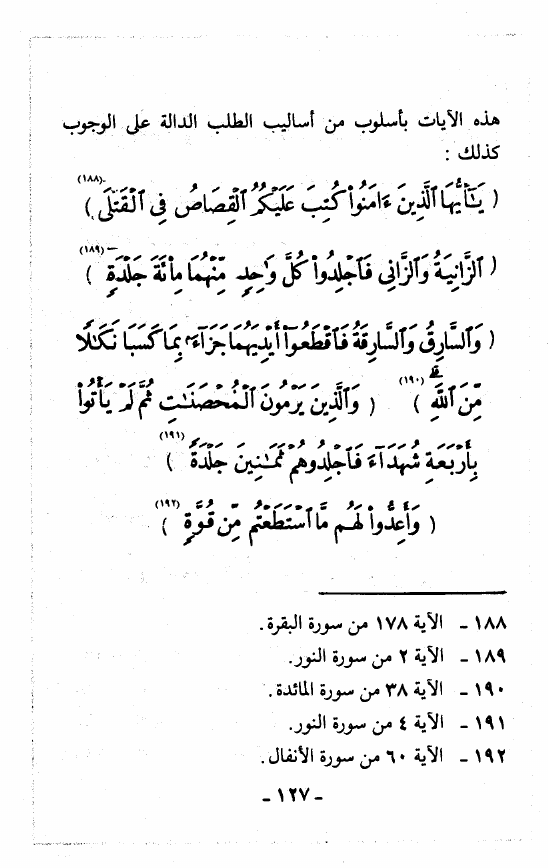 هذه الآيات بأسلوب من أساليب الطلب الدالة على الوجوب
كذلك :
( يَـٰٓأَيُّهَا ٱلَّذِينَ ءَامَنُوا۟ كُتِبَ عَلَيْكُمُ ٱلْقِصَاصُ فِى ٱلْقَتْلَى ) (١٨٨)
( ٱلزَّانِيَةُ وَٱلزَّانِى فَٱجْلِدُوا۟ كُلَّ وَٰحِدٍ مِّنْهُمَا مِا۟ئَةَ جَلْدَةٍ ) (١٨٩)
( وَٱلسَّارِقُ وَٱلسَّارِقَةُ فَٱقْطَعُوٓا۟ أَيْدِيَهُمَا جَزَآءًۢ بِمَا كَسَبَا نَكَـٰلًا
مِّنَ ٱللَّهِ ۗ ) (١٩٠) ( وَٱلَّذِينَ يَرْمُونَ ٱلْمُحْصَنَـٰتِ ثُمَّ لَمْ يَأْتُوا۟
بِأَرْبَعَةِ شُهَدَآءَ فَٱجْلِدُوهُمْ ثَمَـٰنِينَ جَلْدَةً ) (١٩١)
( وَأَعِدُّوا۟ لَهُم مَّا ٱسْتَطَعْتُم مِّن قُوَّةٍ ) (١٩٢)
١٨٨ - الآية ١٧٨ من سورة البقرة .
١٨٩ - الآية ٢ من سورة النور .
١٩٠ - الآية ٣٨ من سورة المائدة .
١٩١ - الآية ٤ من سورة النور .
١٩٢ - الآية ٦٠ من سورة الأنفال .
- ١٢٧ -